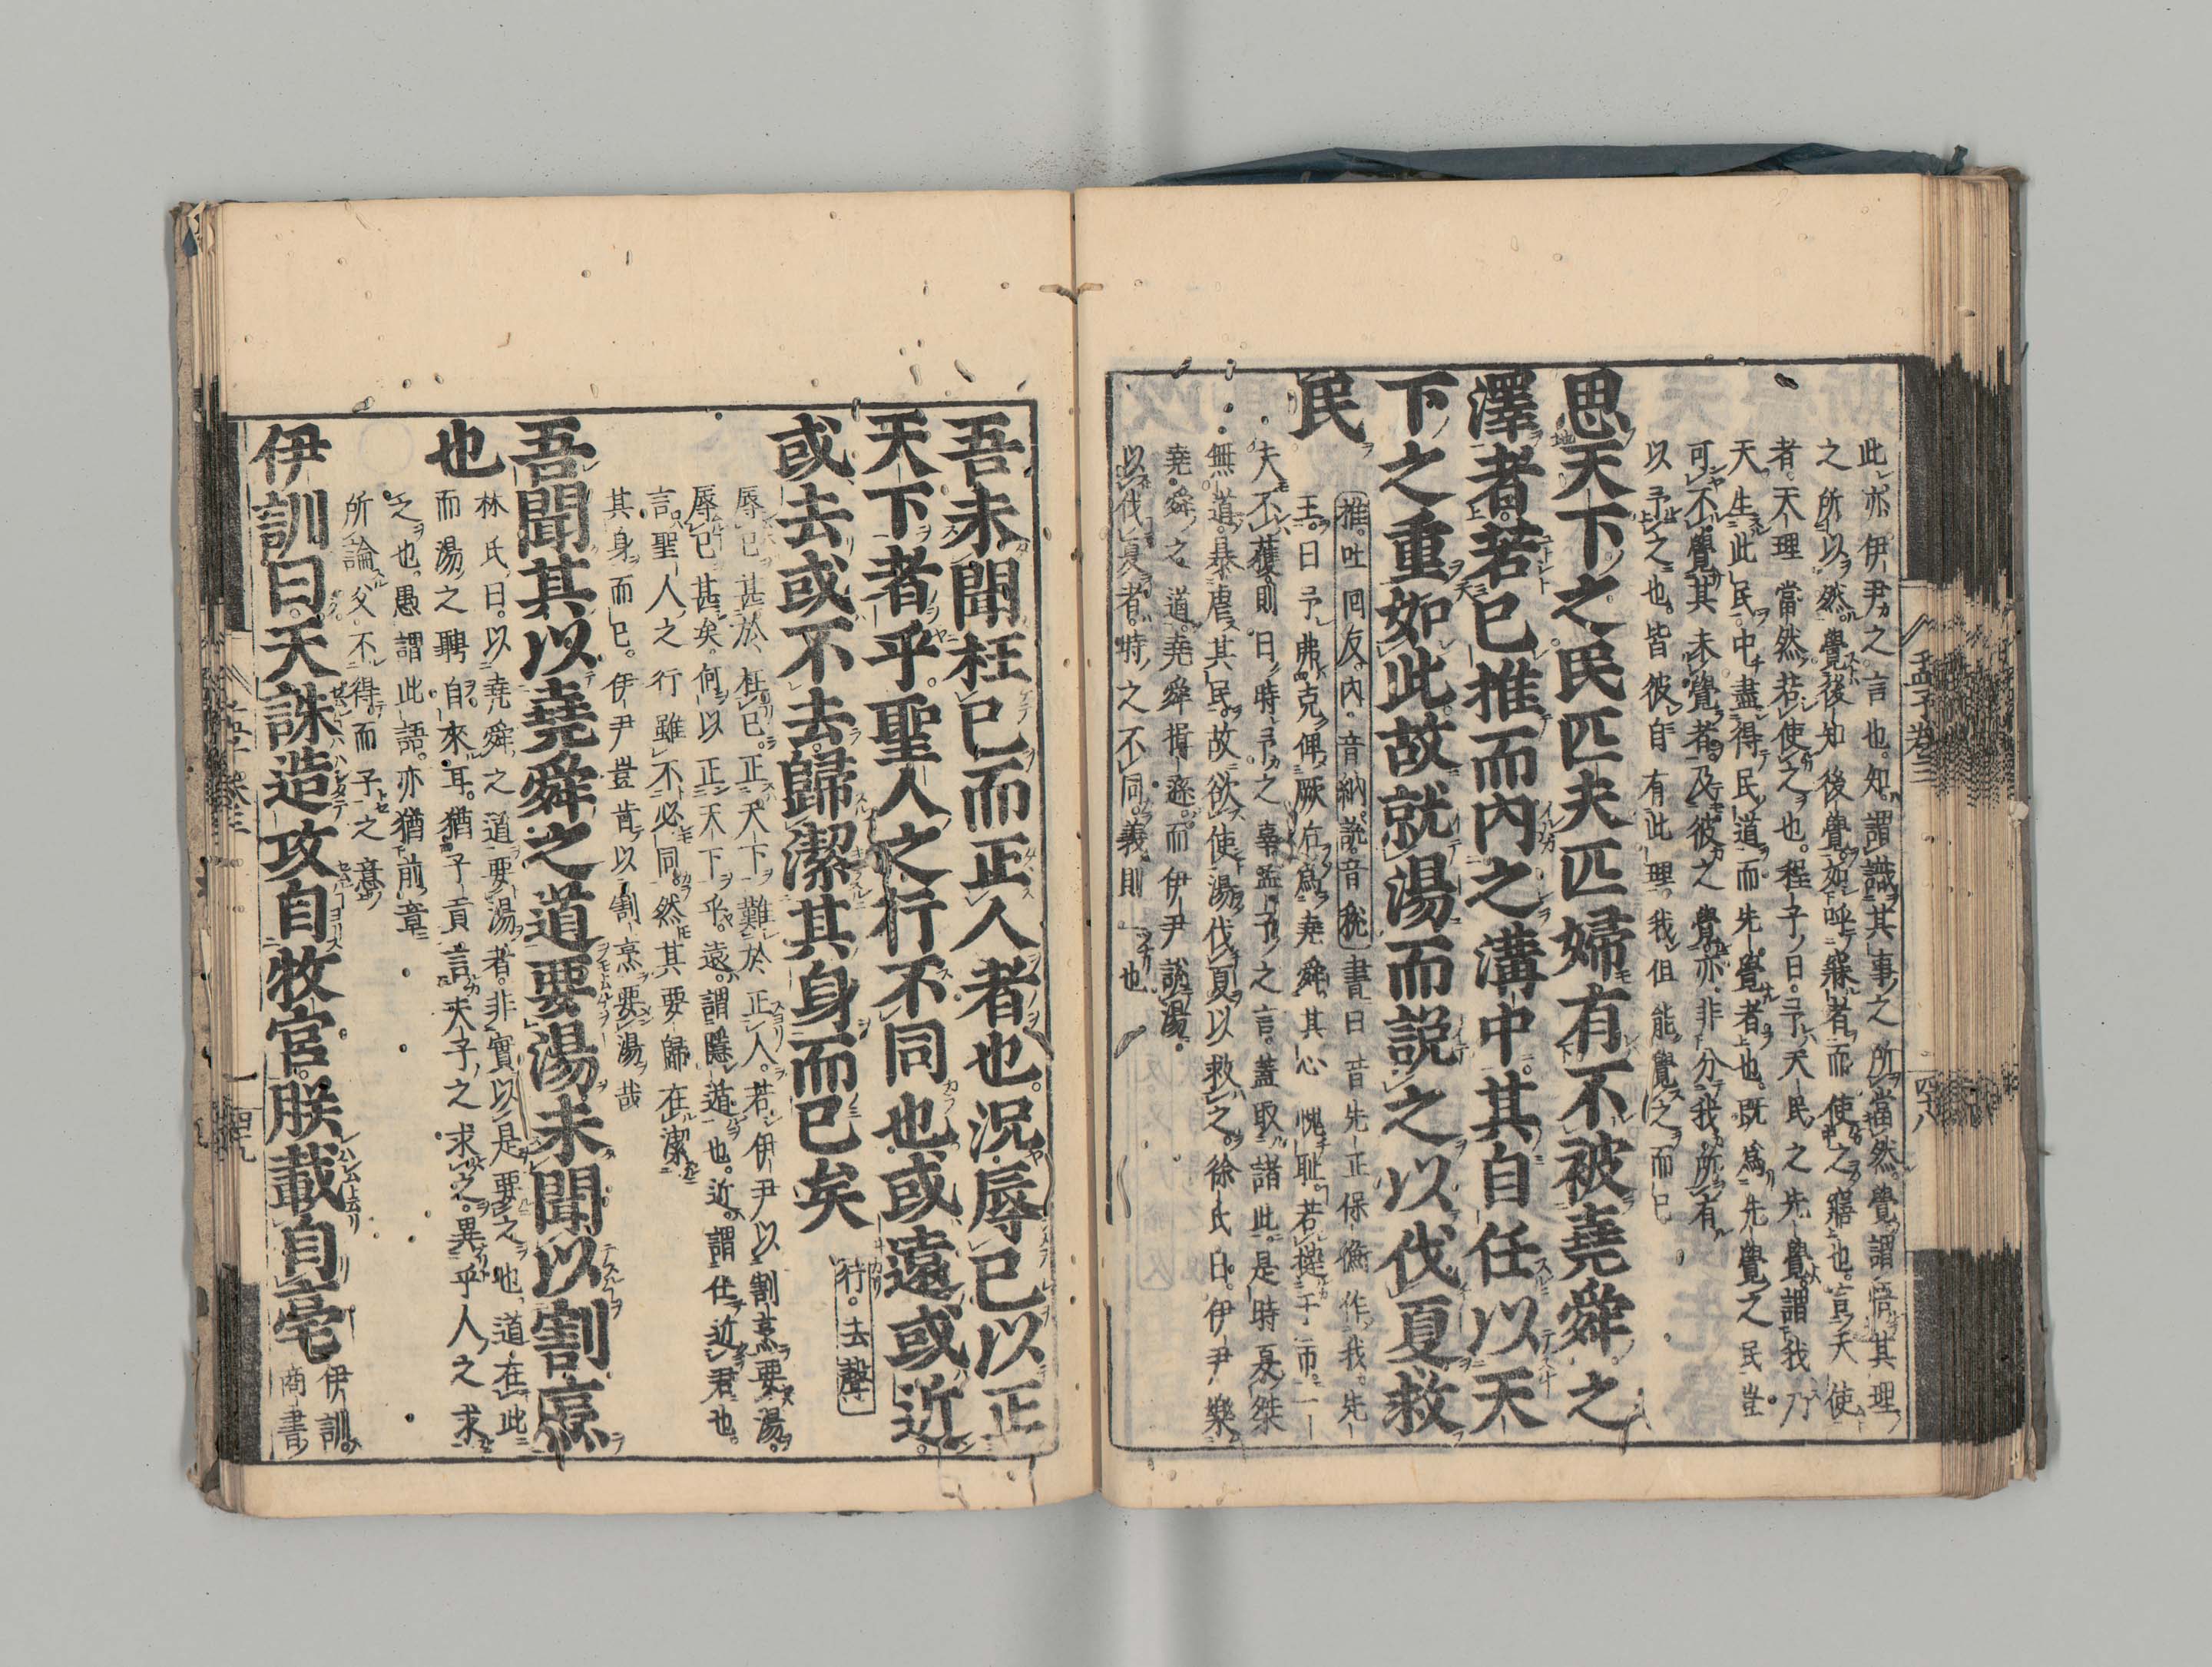 此亦伊尹之言也。知。謂識其事之所當然。覺。謂悟其理
之所以然。覺後知後覺。如呼寐者而使之寤也。言天使
者。天理當然。若使之也。程子曰。予天民之先覺。謂我乃
天生此民。中盡得民道而先覺者也。既爲先覺之民豈
可不覺其未覺者。及彼之覺。亦非分我所有
以予之也。皆彼自有此理。我但能覺之而已
思天下之民匹夫匹婦有不被堯舜之
澤者。若己推而内之溝中。其自任以天
下之重如此。故就湯而説之以伐夏救
民
推。吐回反。内。音納。説。音税
書曰昔先正保衡作我先
王。曰予弗克俾厥后爲堯舜。其心愧恥。若撻于市。一
夫不獲。則曰時予之辜。孟子之言。蓋取諸此。是時夏桀
無道。暴虐其民。故欲使湯伐夏以救之。徐氏曰。伊尹樂
堯舜之道。堯舜揖遜。而伊尹説湯
以伐夏者。時之不同。義則一也
孟子卷三
四十八
吾未聞枉己而正人者也。況辱己以正
天下者乎。聖人之行不同也。或遠或近。
或去或不去。歸潔其身而已矣
行。去聲
辱己甚於枉己。正天下難於正人。若伊尹以割烹要湯。
辱己甚矣。何以正天下乎。遠。謂隱遁也。近。謂仕近君也。
言聖人之行雖不必同。然其要歸在潔
其身而已。伊尹豈肯以割烹要湯哉
吾聞其以堯舜之道要湯。未聞以割烹
也
林氏曰。以堯舜之道要湯者。非實以是要之也。道在此
而湯之聘自來耳。猶子貢言夫子之求之。異乎人之求
之也。愚謂此語。亦猶前章
所論父不得而子之意
伊訓曰。天誅造攻自牧宮。朕載自亳
伊訓。
商書
孟子卷三
四十九